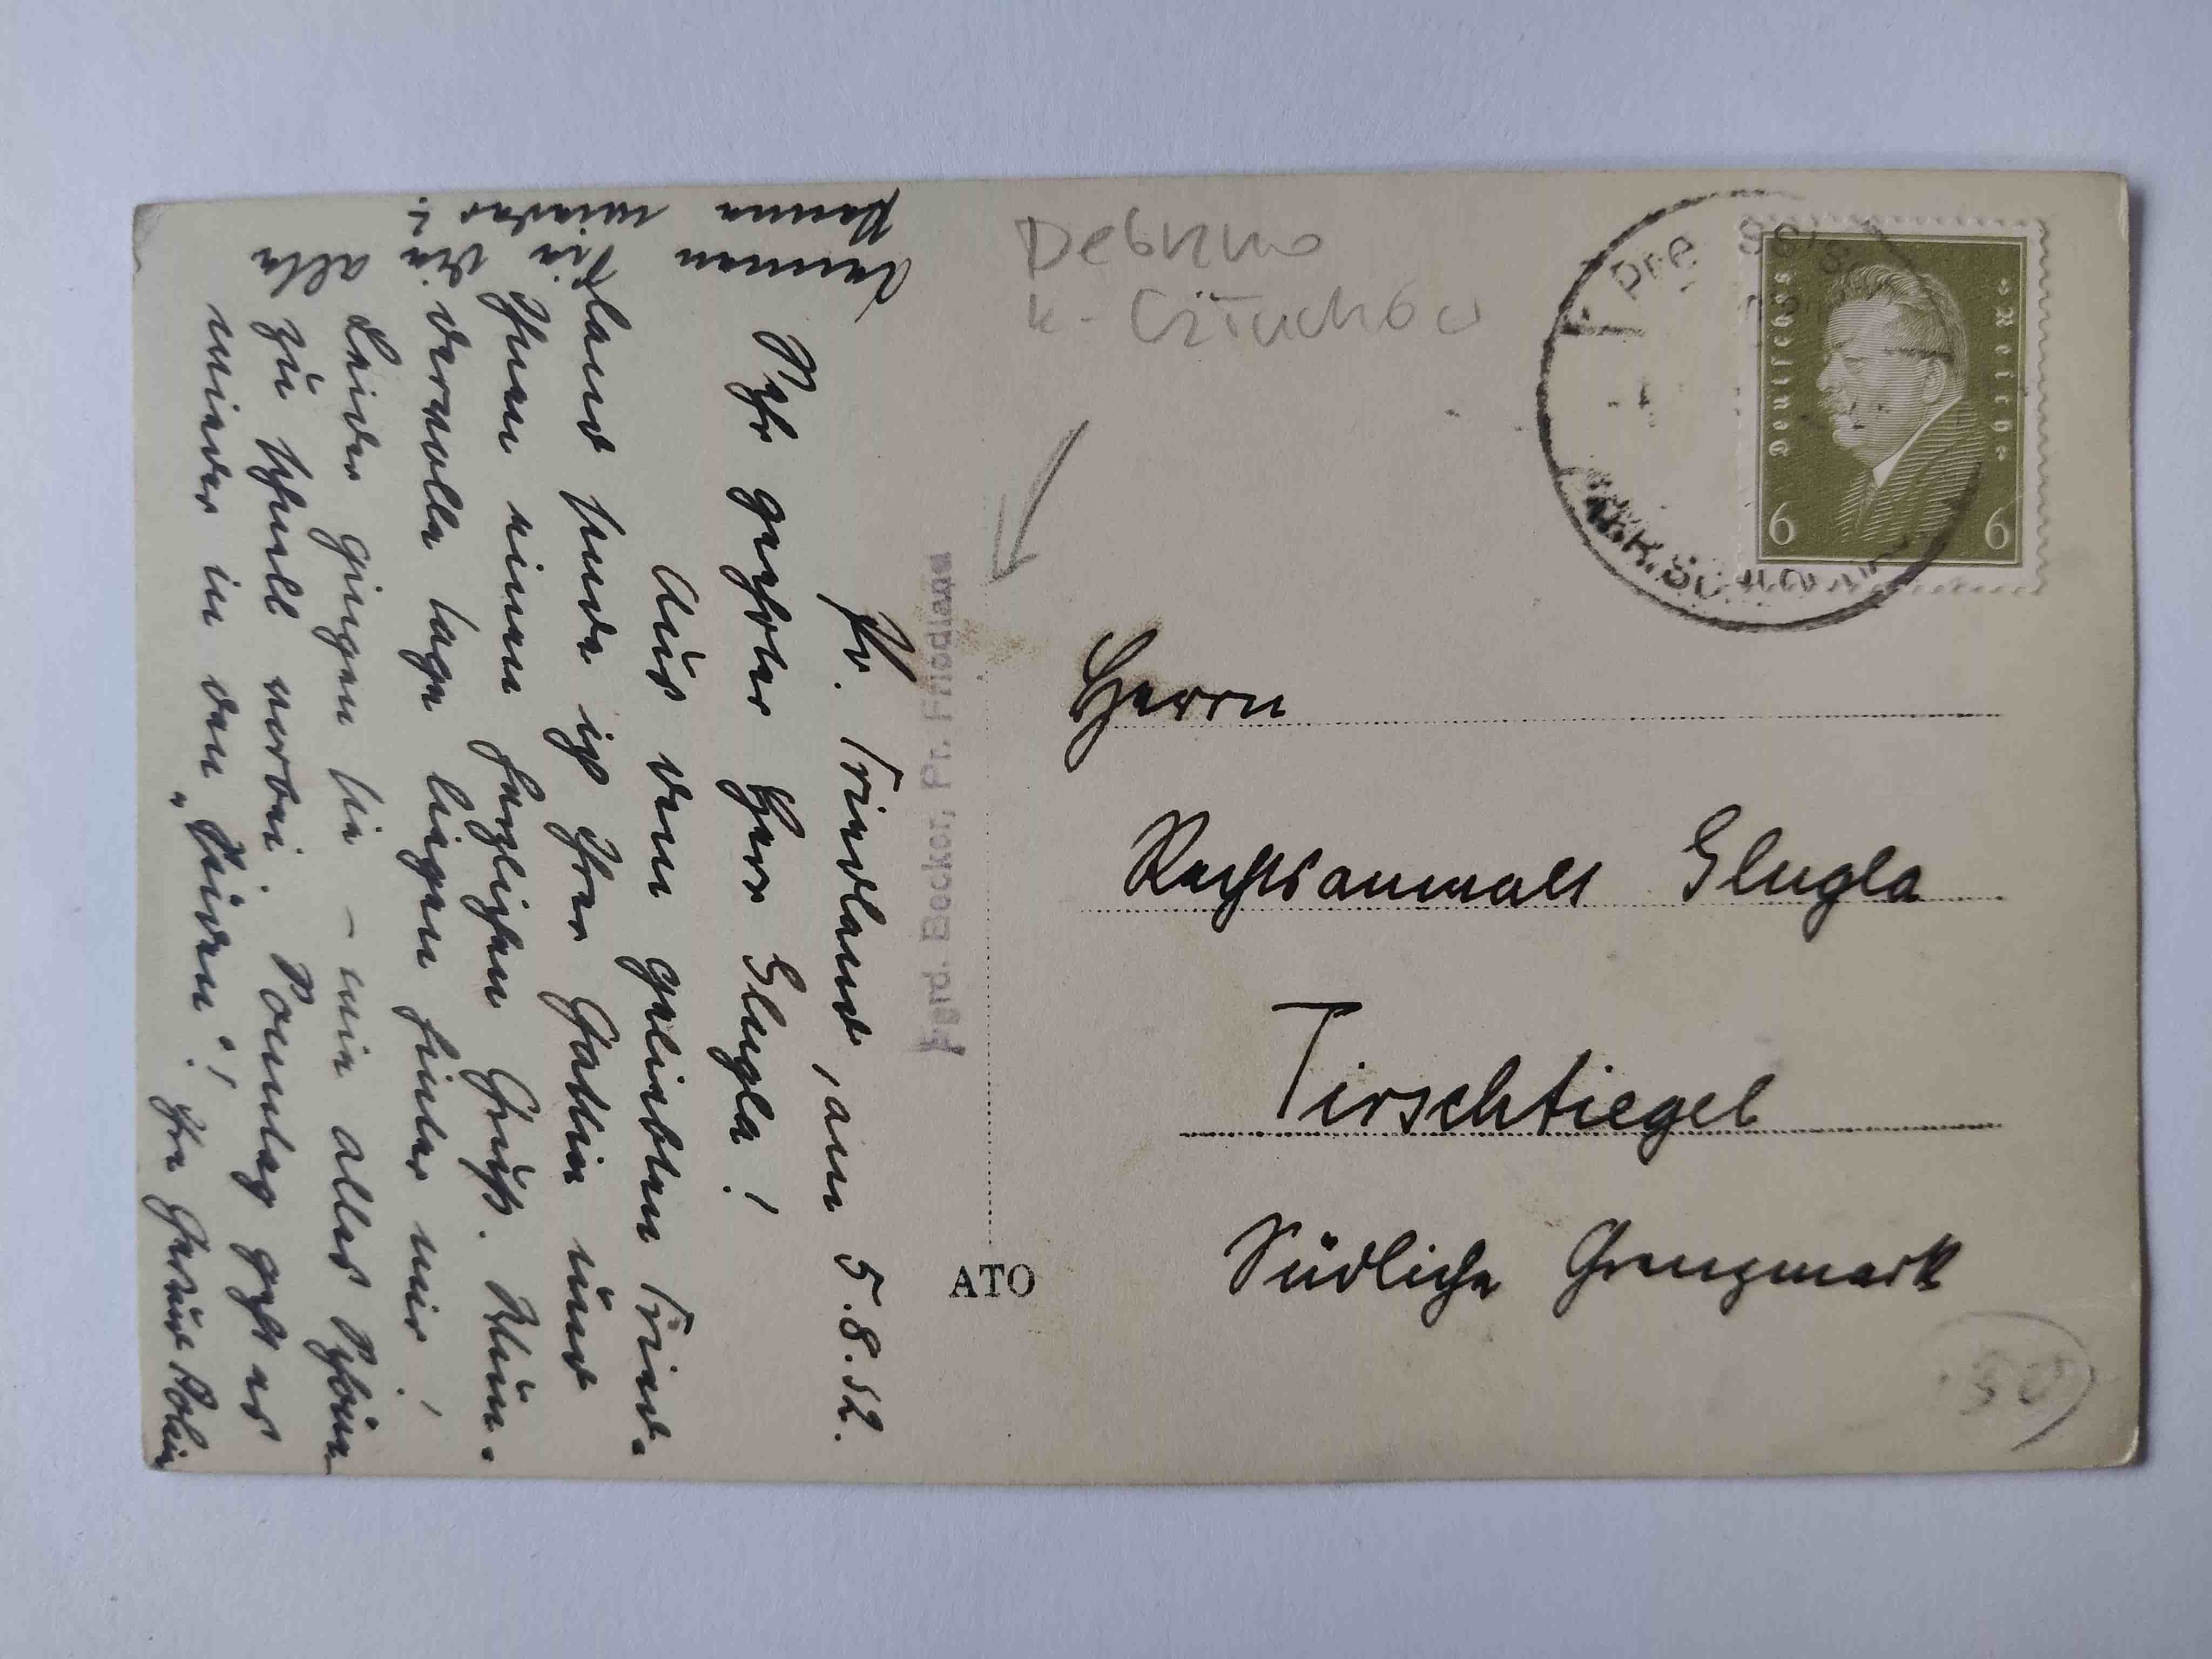 Debrzno
k. Człuchów
Deutsches Reich
6 6
Herrn
Rechtsanwalt Glugla
Tirschtiegel
Südliche Grenzmark
Ferd. Becker, Pr. Friedland
ATO
Pr. Friedland, am 5.8.32.
Sehr geehrter Herr Glugla!
Aus dem geliebten Fried-
land sende ich Ihrer Gattin und
Ihnen einen herzlichen Gruß.
dervolle Tage liegen hinter mir!
Leider gingen sie – wie alles Schöne
zu schnell vorbei. Sonntag geht es
wieder in den „Süden“! Ihr
wieder
Die
alle